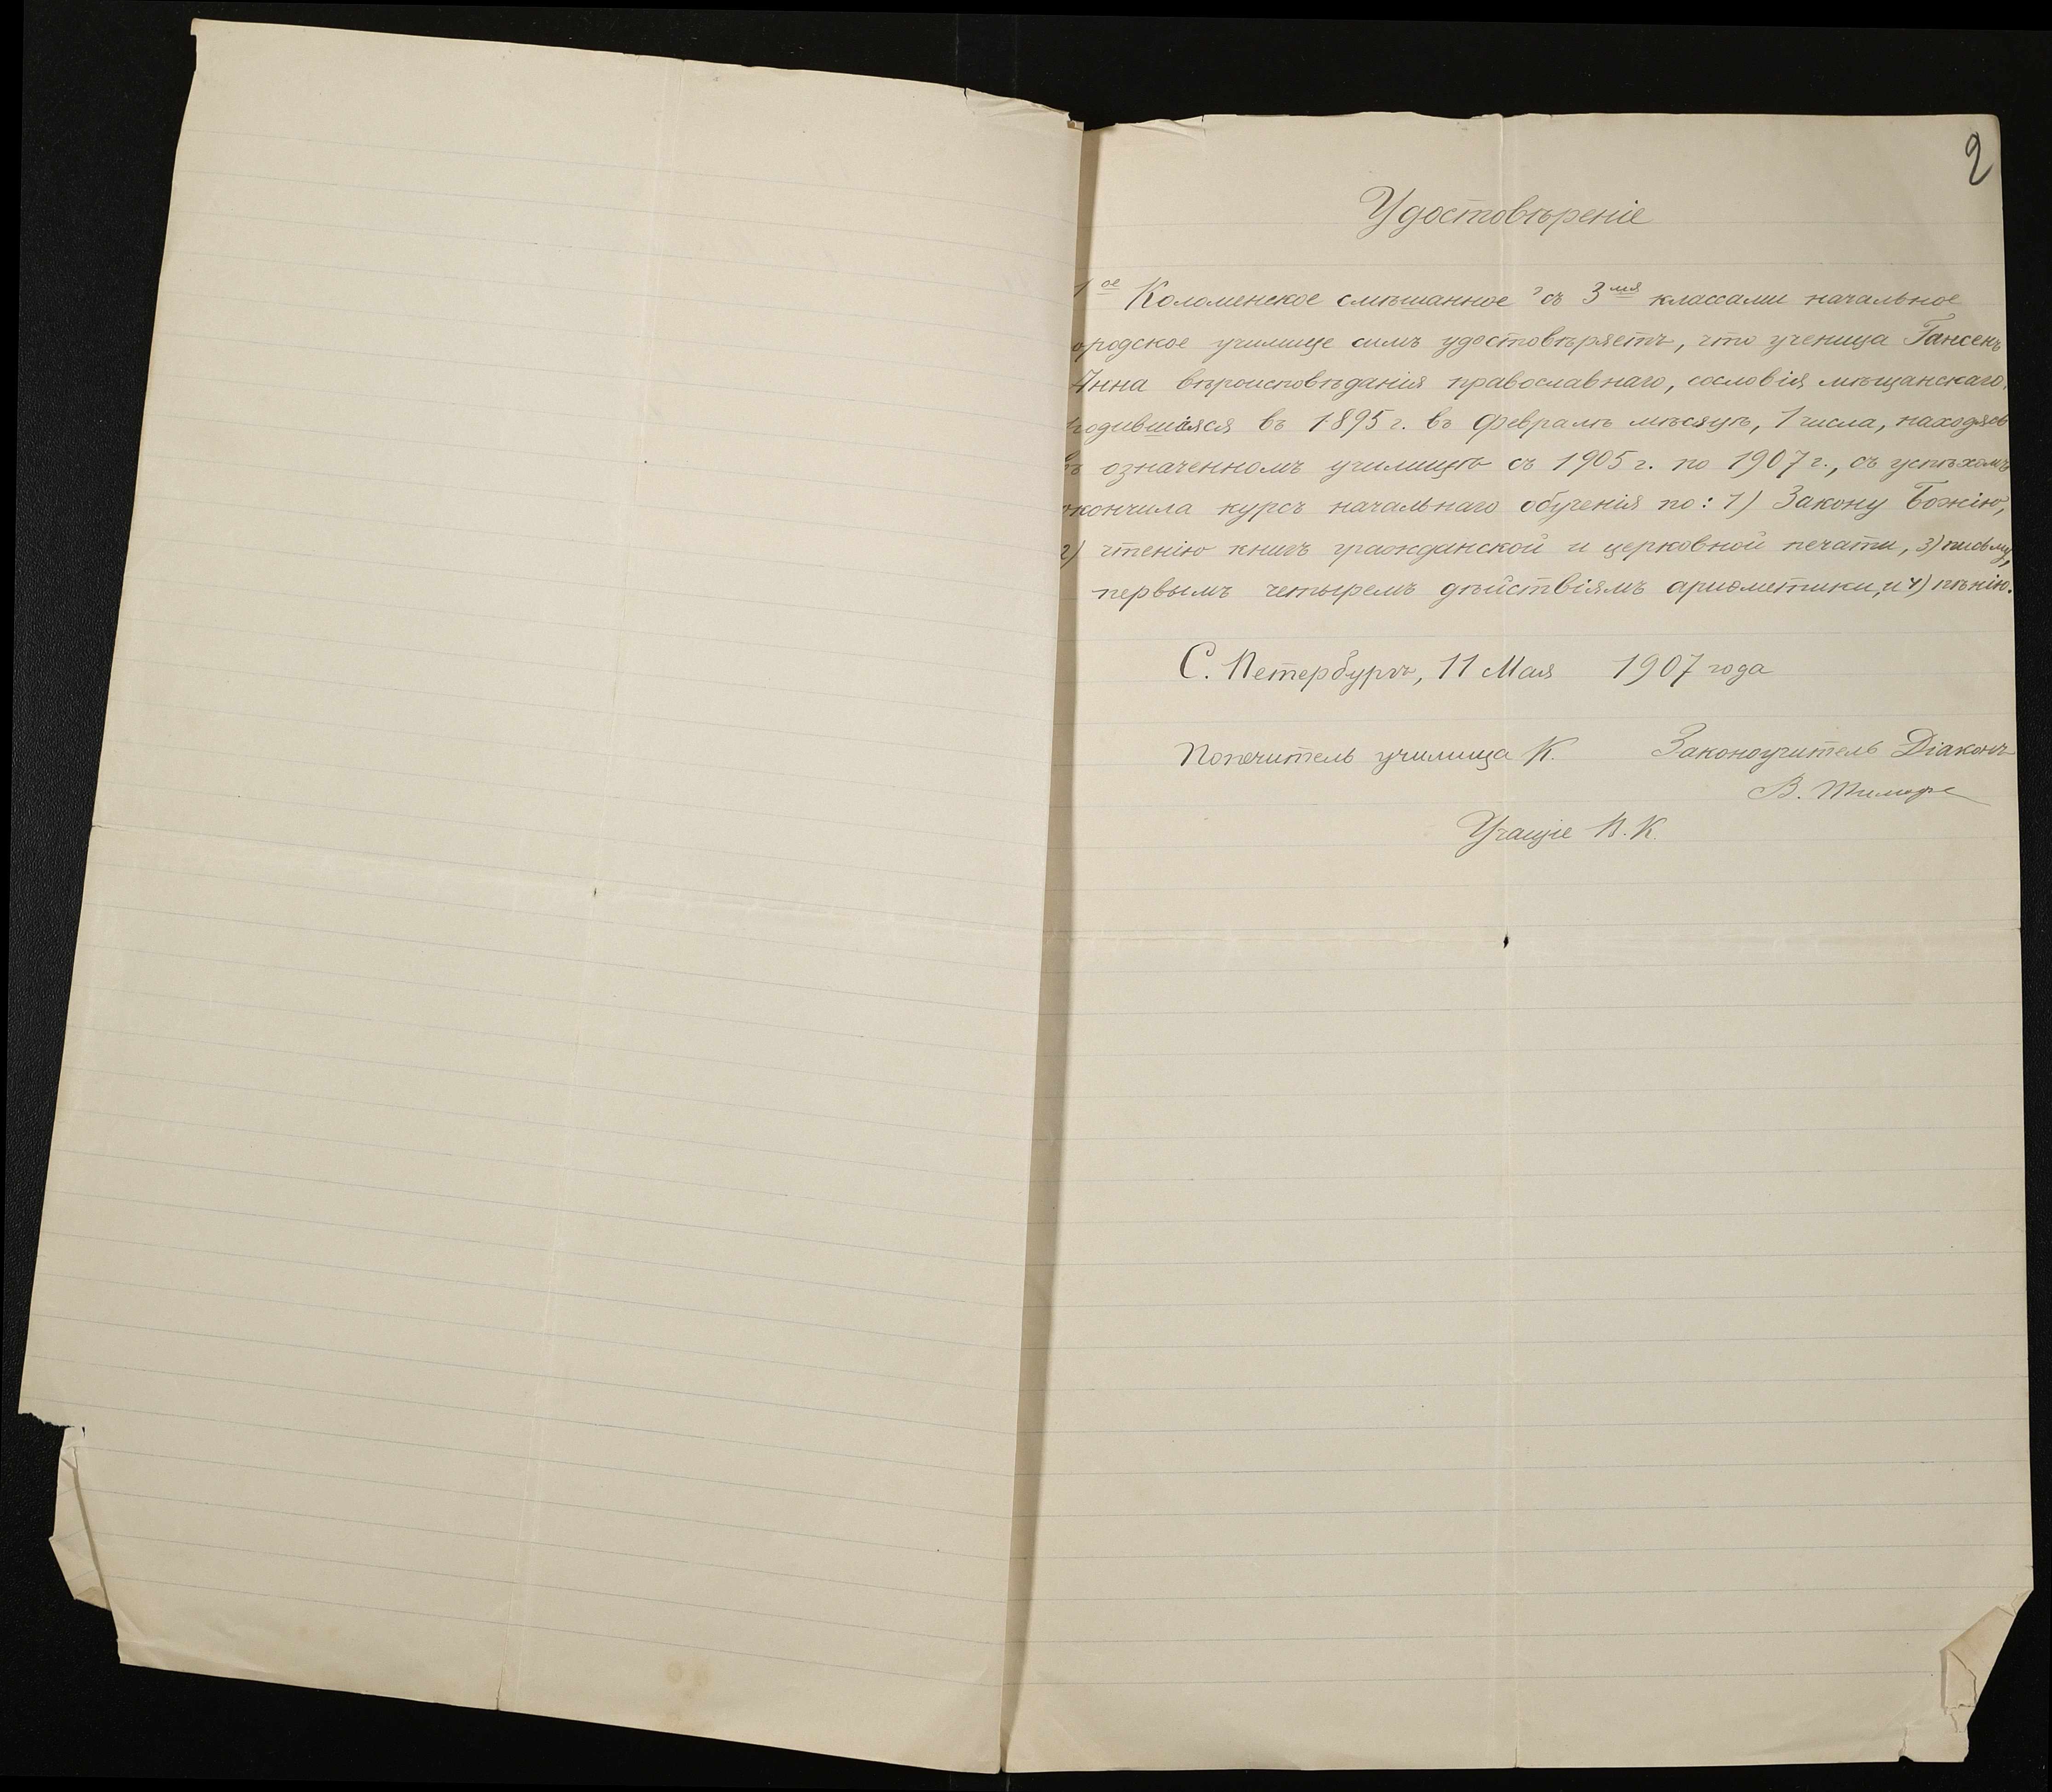 2
Удостовѣреніе
1ое Коломенское смѣшанное съ 3мя классами начальное
ородское училище симъ удостовѣряетъ, что ученица Гансенъ
Анна вѣроисповѣданія православнаго, сословія мѣщанскаго,
родившаяся въ 1895 г. въ Февралѣ мѣсяцѣ, 1 числа, находясь
въ означенномъ училищѣ съ 1905 г. по 1907 г., съ успѣхомъ
окончила курсъ начальнаго обученія по: 1) Закону Божію,
2) чтенію книгъ гражданской и церковной печати, 3) письму,
первымъ четыремъ дѣйствіямъ ариѳметики, и 4) пѣнію.
С. Петербургъ, 11 Мая 1907 года
Попечитель училища К. Законоучитель Діаконъ
В.
Учащіе В. К.